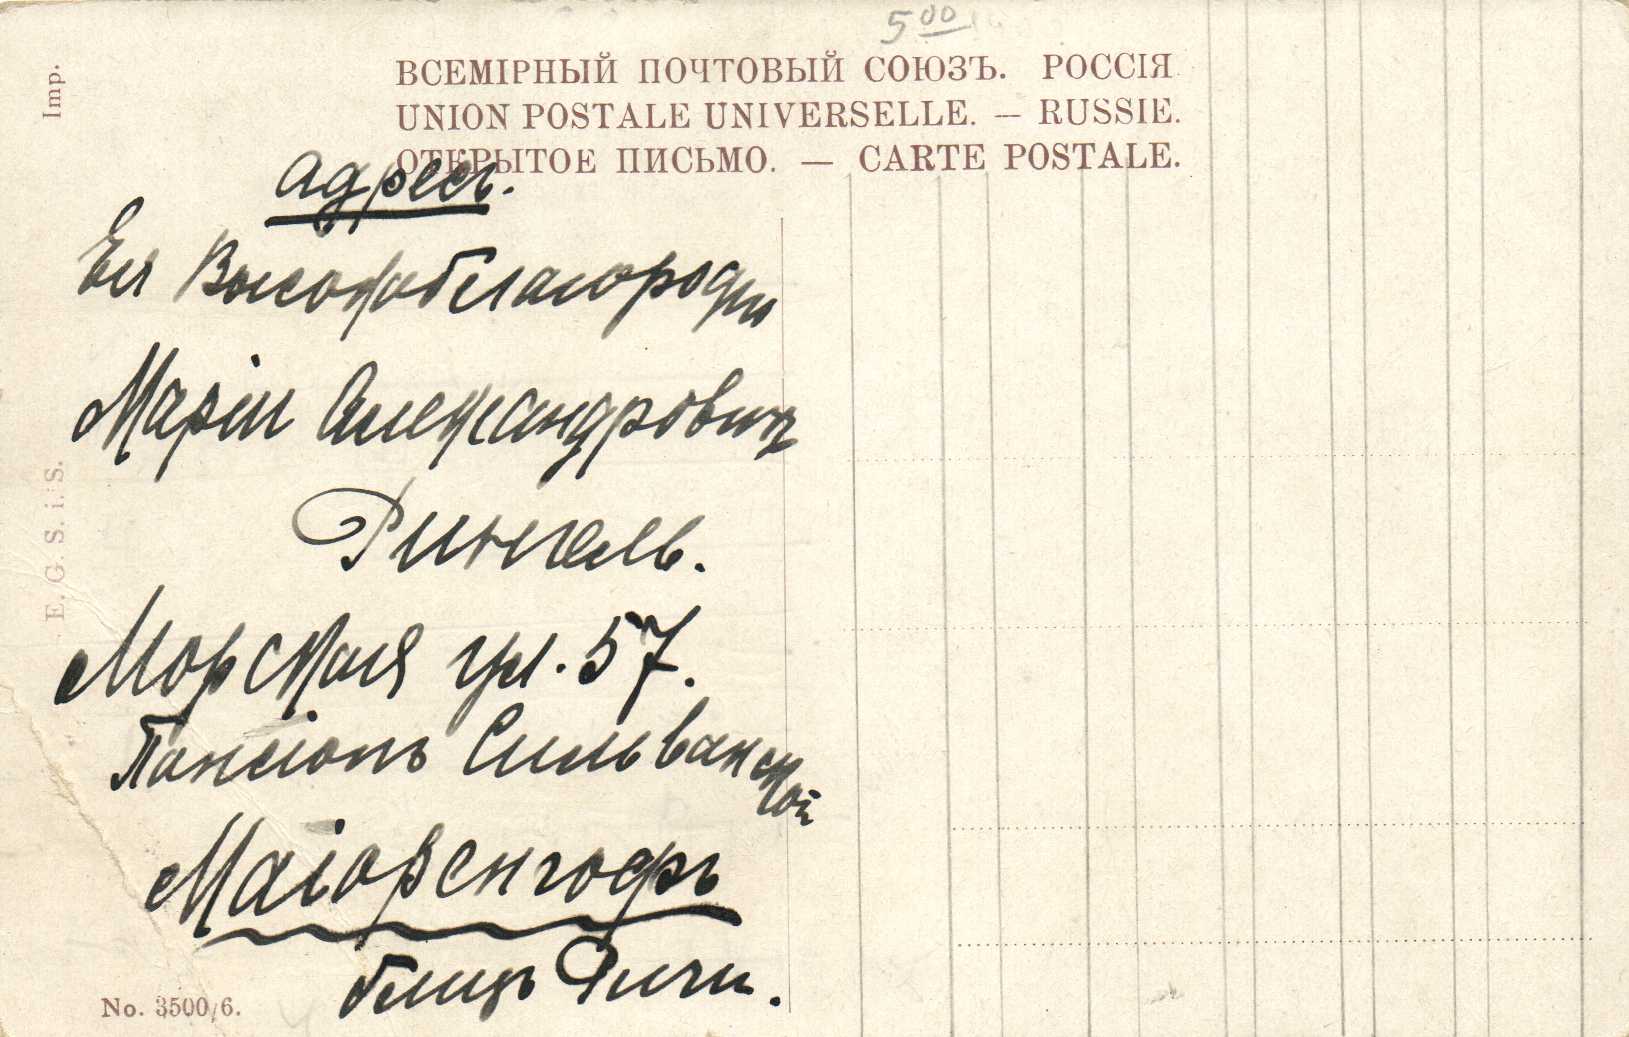 5 00
ВСЕМІРНЫЙ ПОЧТОВЫЙ СОЮЗЪ. РОССІЯ
UNION POSTALE UNIVERSELLE. — RUSSIE.
ОТКРЫТОЕ ПИСЬМО. — CARTE POSTALE.
Адресъ.
Ея Высокоблагородiю
Марiи Александровнѣ
Рингель.
Морская ул. 57.
Пансіонъ Сильванской
Маіоренгофъ
близъ Риги.
Imp.
E. G. S. i. S.
No. 3500/6.